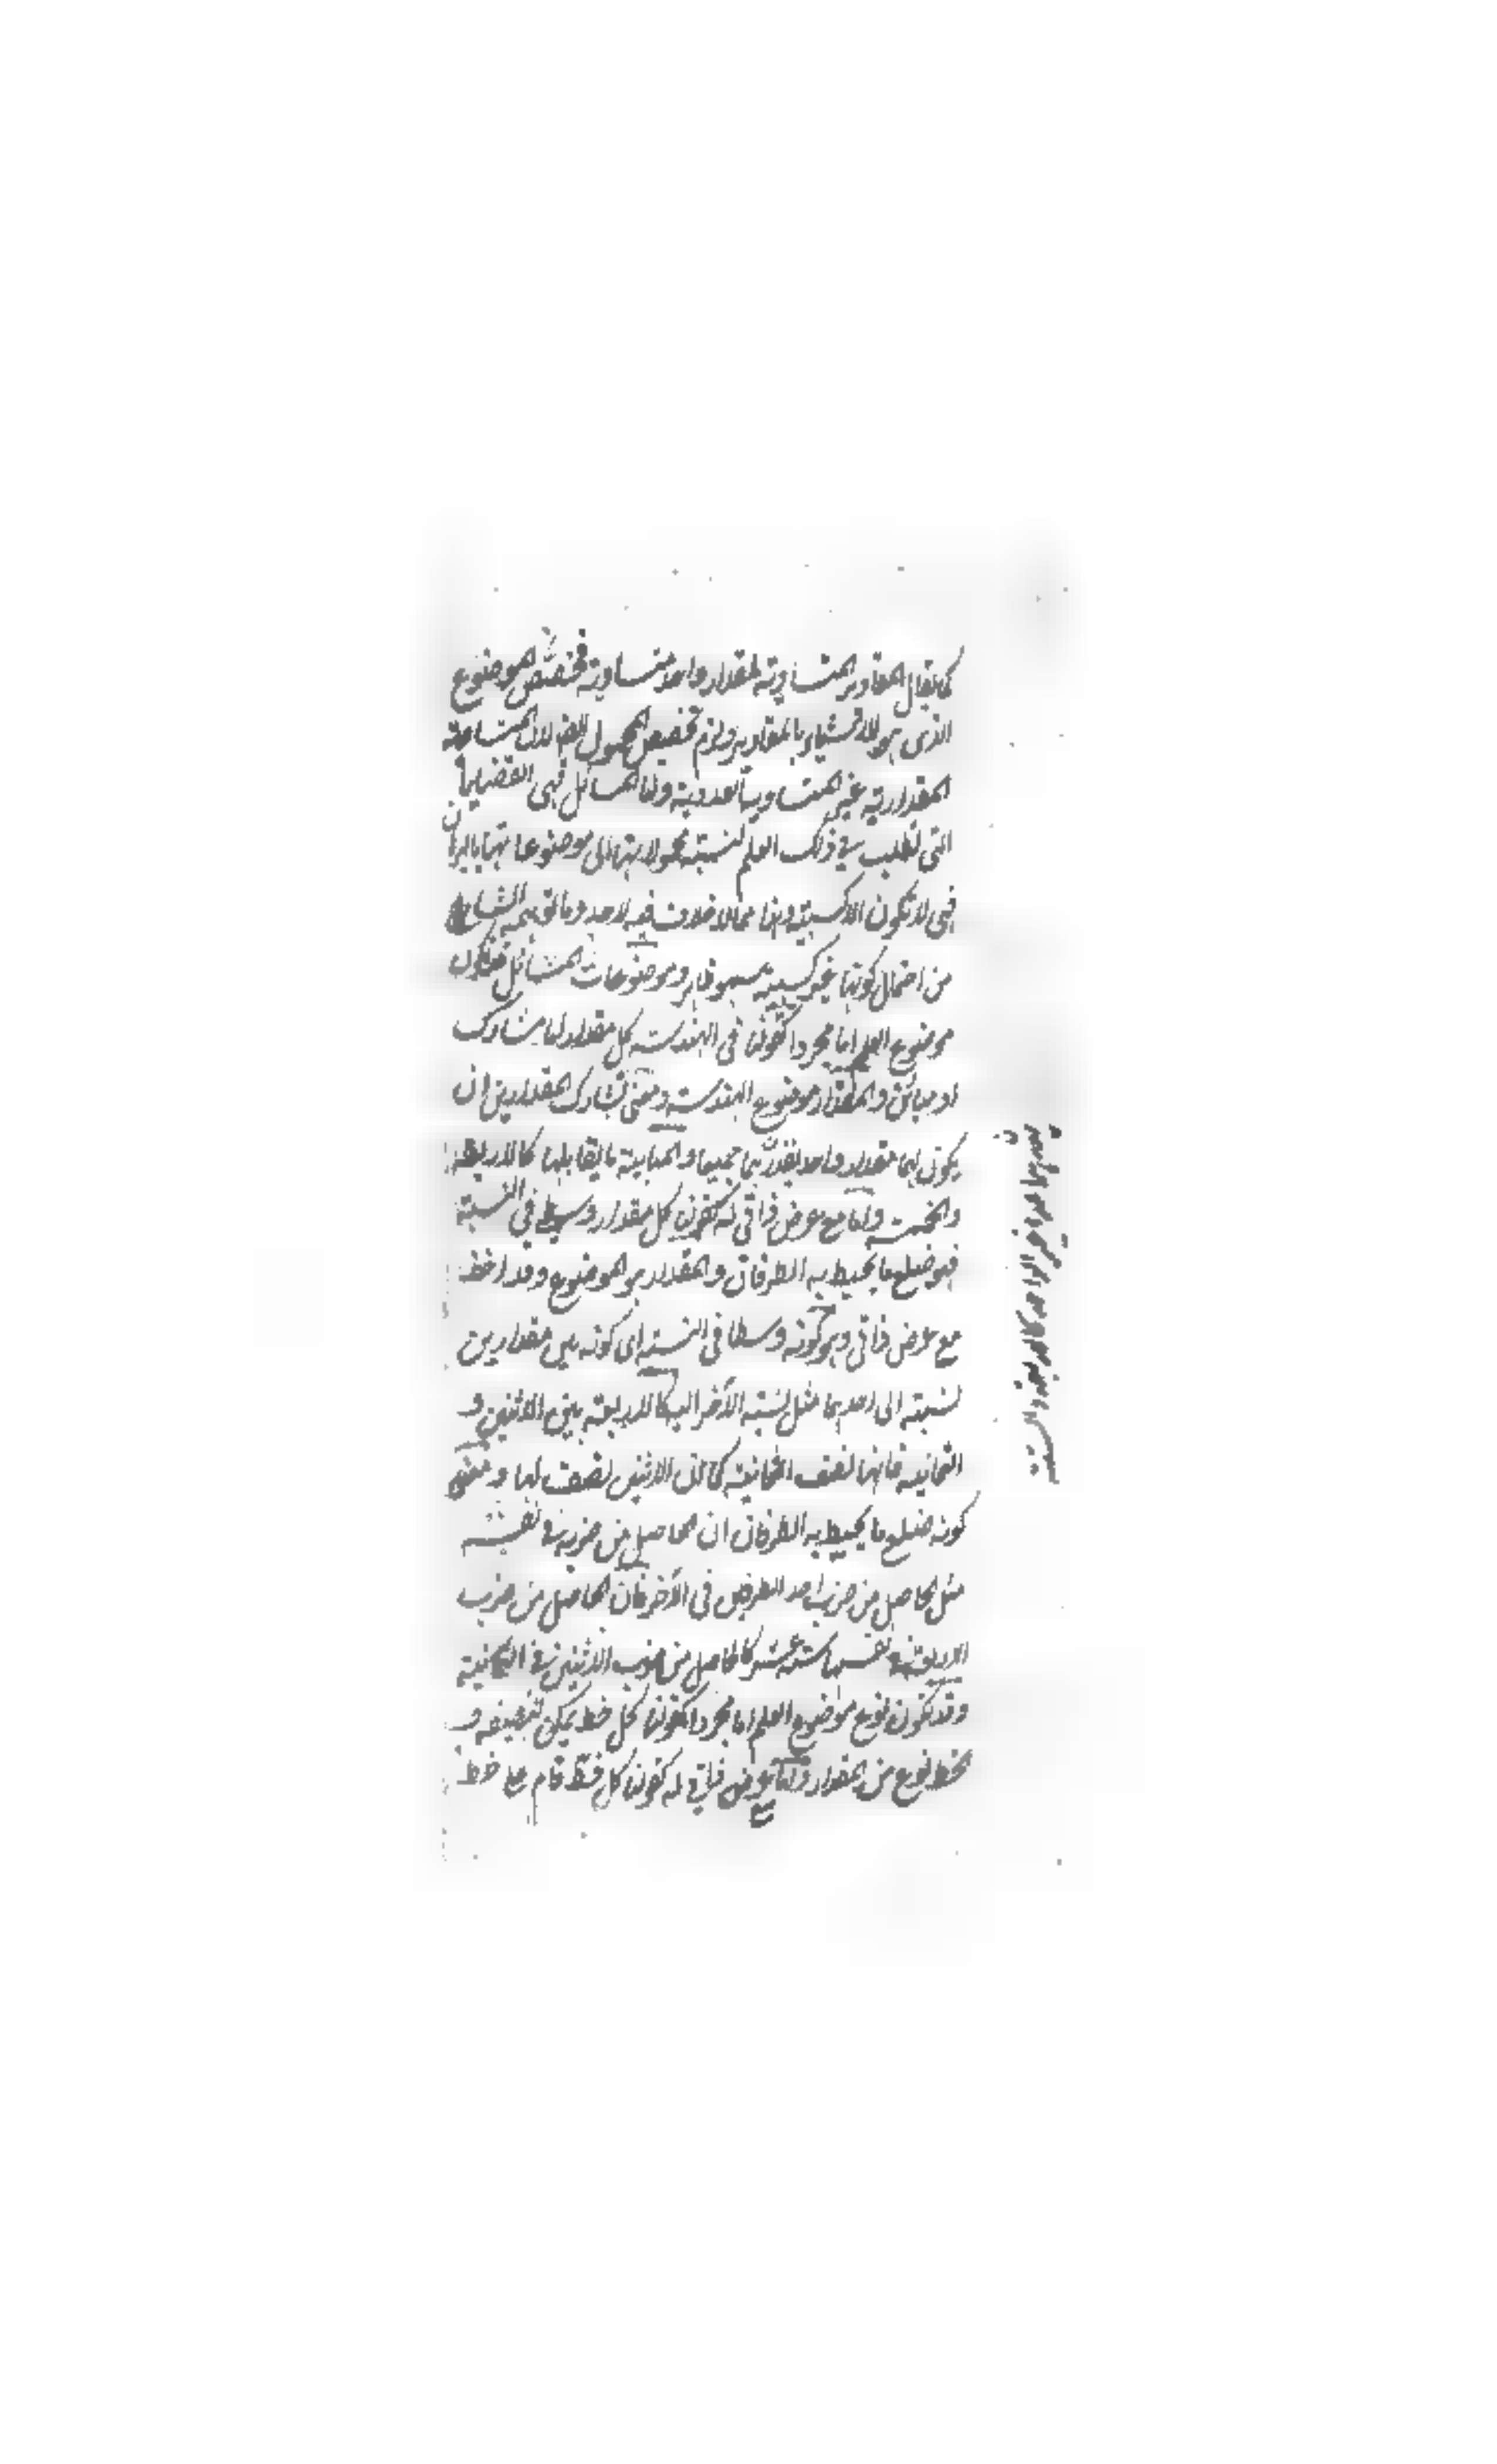 كما يقال المقادير المتساوية لمقدار واحد متساوية فخصص الموضوع
الذي هو الاشياء بالمقادير ولزم تخصيص المحمول ايضا لان المساواة
المقدارية غير المساويت العددية واما المسائل فهي القضايا
التي تطلب في ذلك العلم نسبة محمولاتها الى موضوعاتها بالبرهان
فهي لا تكون الا كسبية وهذا مما لا خلاف فيه لاحد وما توهمه الشارح
من احتمال كونها غير كسبية سهو ظاهر وموضوعات المسائل قد تكون
موضوع العلم اما مجردا كقولنا في الهندسة كل مقدار اما مشارك
او مباين والمقدار موضوع الهندسة ومعنى تشارك المقدارين ان
يكون لهما مقدار واحد يقدرهما جميعا والمباينة ما يقابلها كالاربعة
والخمسة واما مع عرض ذاتي له كقولنا كل مقدار وسط في النسبة
فهو ضلع ما يحيط به الطرفان والمقدار هو الموضوع وقد اخذ
مع عرض ذاتي وهو كونه وسطا في النسبة اى كونه بين مقدارين
نسبته الى احدهما مثل نسبة الآخر اليه كالاربعة بين الاثنين و
الثمانية فانها نصف الثمانية كما ان الاثنين نصف لها ومعنى
كونه ضلع ما يحيط به الطرفان ان الحاصل من ضربه في نفسه
مثل الحاصل من ضرب احد الطرفين في الآخر فان الحاصل من ضرب
الاربعة في نفسها ستة عشر كالحاصل من ضرب الاثنين في الثمانية
وقد تكون نوع موضوع العلم اما مجردا كقولنا كل خط يمكن تنصيفه و
الخط نوع من المقدار واما مع عرض ذاتي له كقولنا كل خط قام على خط